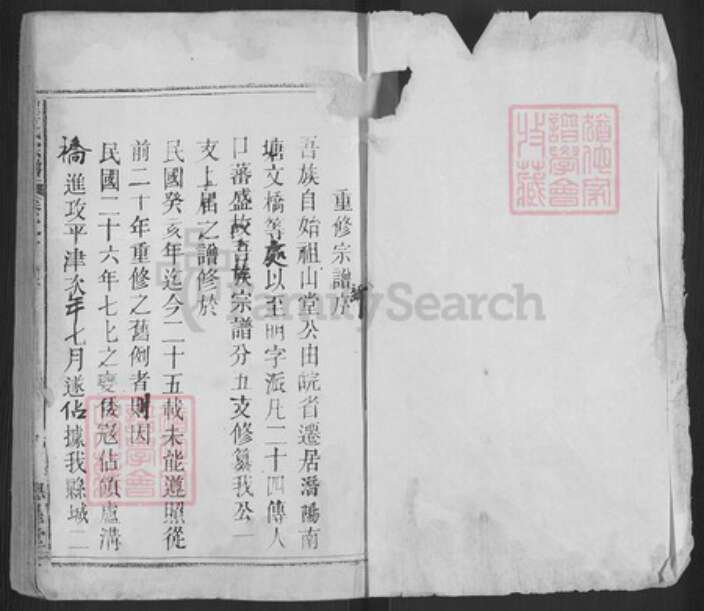 重修宗譜序
吾族自始祖山堂公由皖省遷居潛陽南
塘文橋等處以至開字派凡二十四傳人
口蕃盛故吾族宗譜分五支修纂我公一
支上屆之譜修於
民國癸亥年迄今二十五載未能遵照從
前二十年重修之舊例者則因
民國二十六年七七之變倭寇佔領盧溝
橋進攻平津次年七月遂佔據我縣城二
FamilySearch
譜學會
收藏